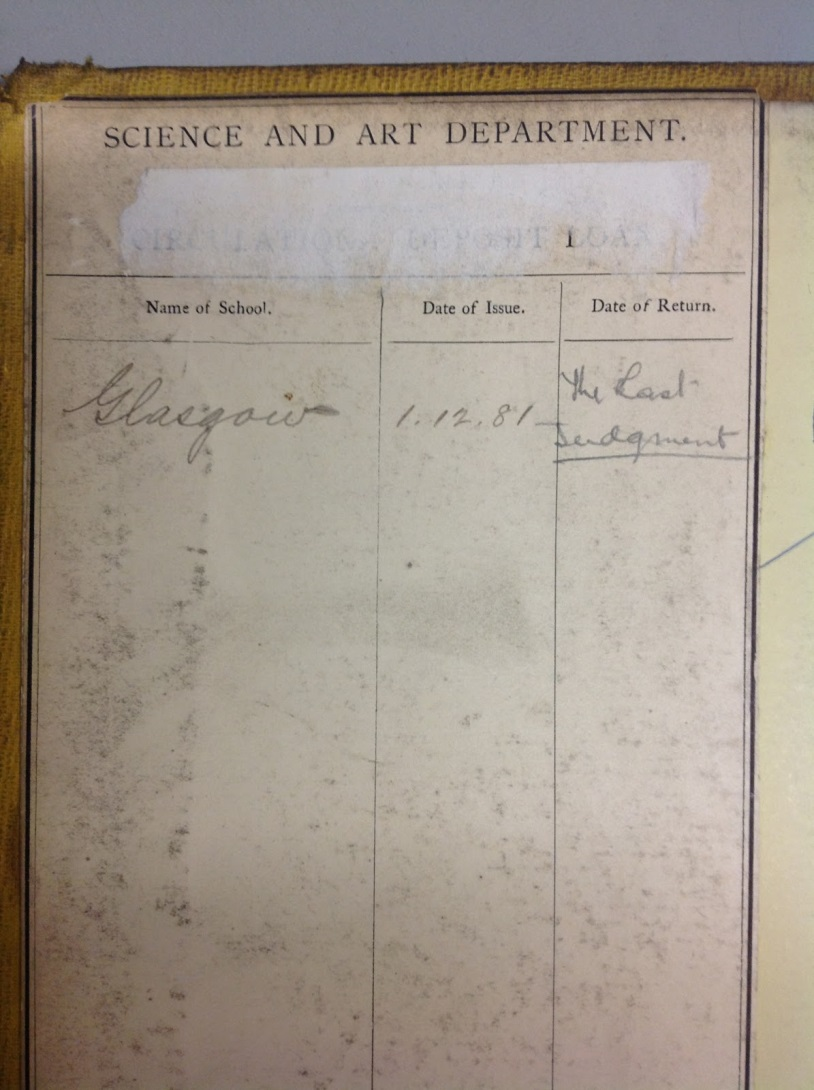 SCIENCE AND ART DEPARTMENT.
Name of School. Date of Issue. Date of Return.
Glasgow 1.12.81 The Last
Judgment